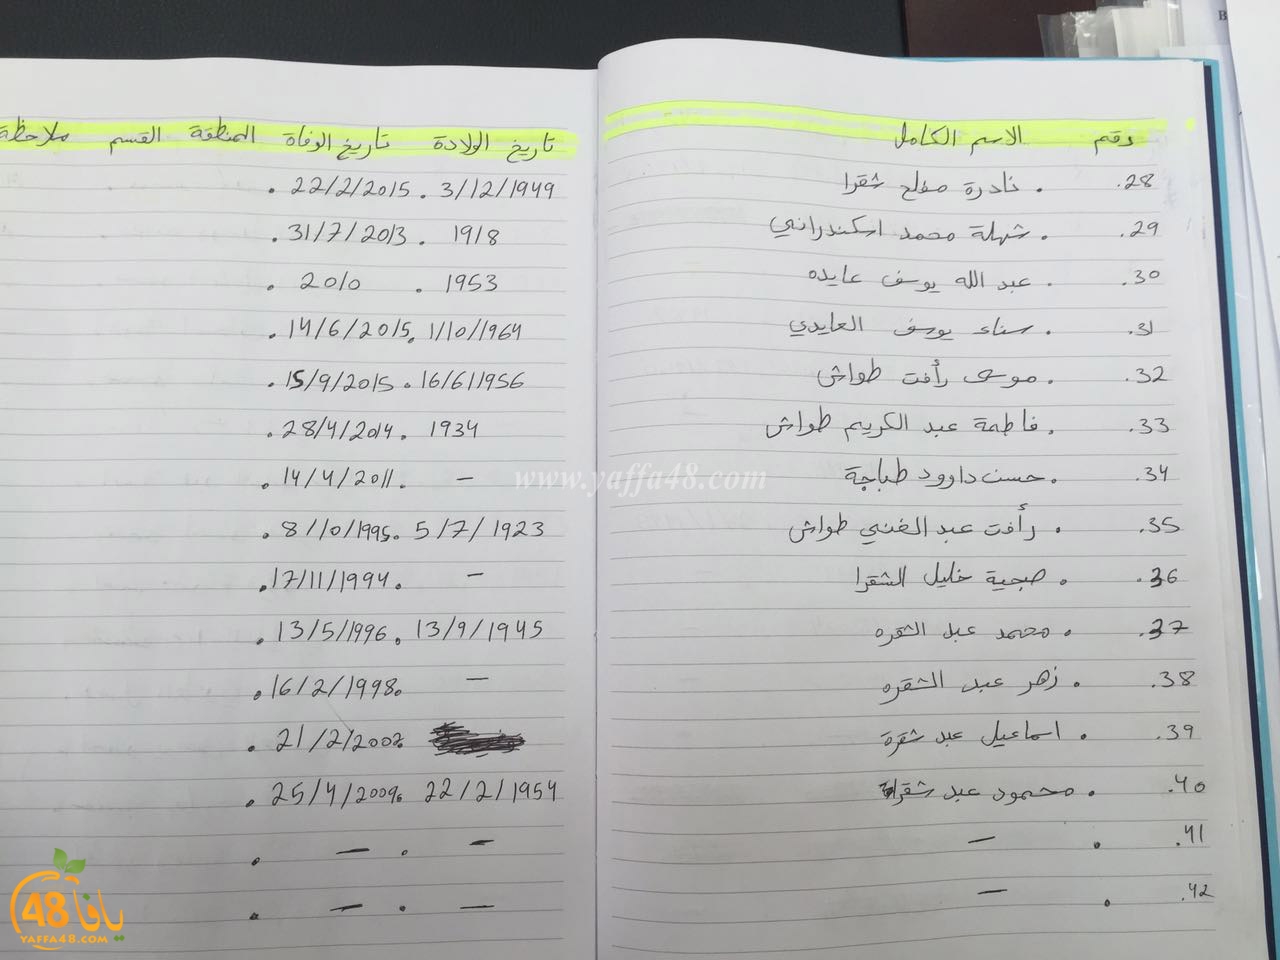 رقم الاسم الكامل تاريخ الولادة تاريخ الوفاة المنطقة القسم ملاحظة
28. نادرة مفلح شقرا . 3/12/1949 . 22/2/2015 .
29. شهلة محمد اسكندراني . 1918 . 31/7/2013 .
30. عبد الله يوسف عايده . 1953 . 2010 .
31. سناء يوسف العايدي . 1/10/1964 . 14/6/2015 .
32. موسى رأفت طواش . 16/6/1956 . 15/9/2015 .
33. فاطمة عبد الكريم طواش . 1934 . 28/4/2014 .
34. حسن داوود طباجة . - . 14/4/2011 .
35. رأفت عبد الغني طواش . 5/7/1923 . 8/10/1995 .
36. صبحية خليل الشقرا . - . 17/11/1994 .
37. محمد عبد الشقره . 13/9/1945 . 13/5/1996 .
38. زهر عبد الشقره . - . 16/2/1998 .
39. اسماعيل عبد شقرة . 21/2/2002 .
40. محمود عبد شقرة . 22/2/1954 . 25/4/2009 .
41. . - - . - .
42. . - - . - .
www.yaffa48.com
يافا 48
YAFFA48.COM